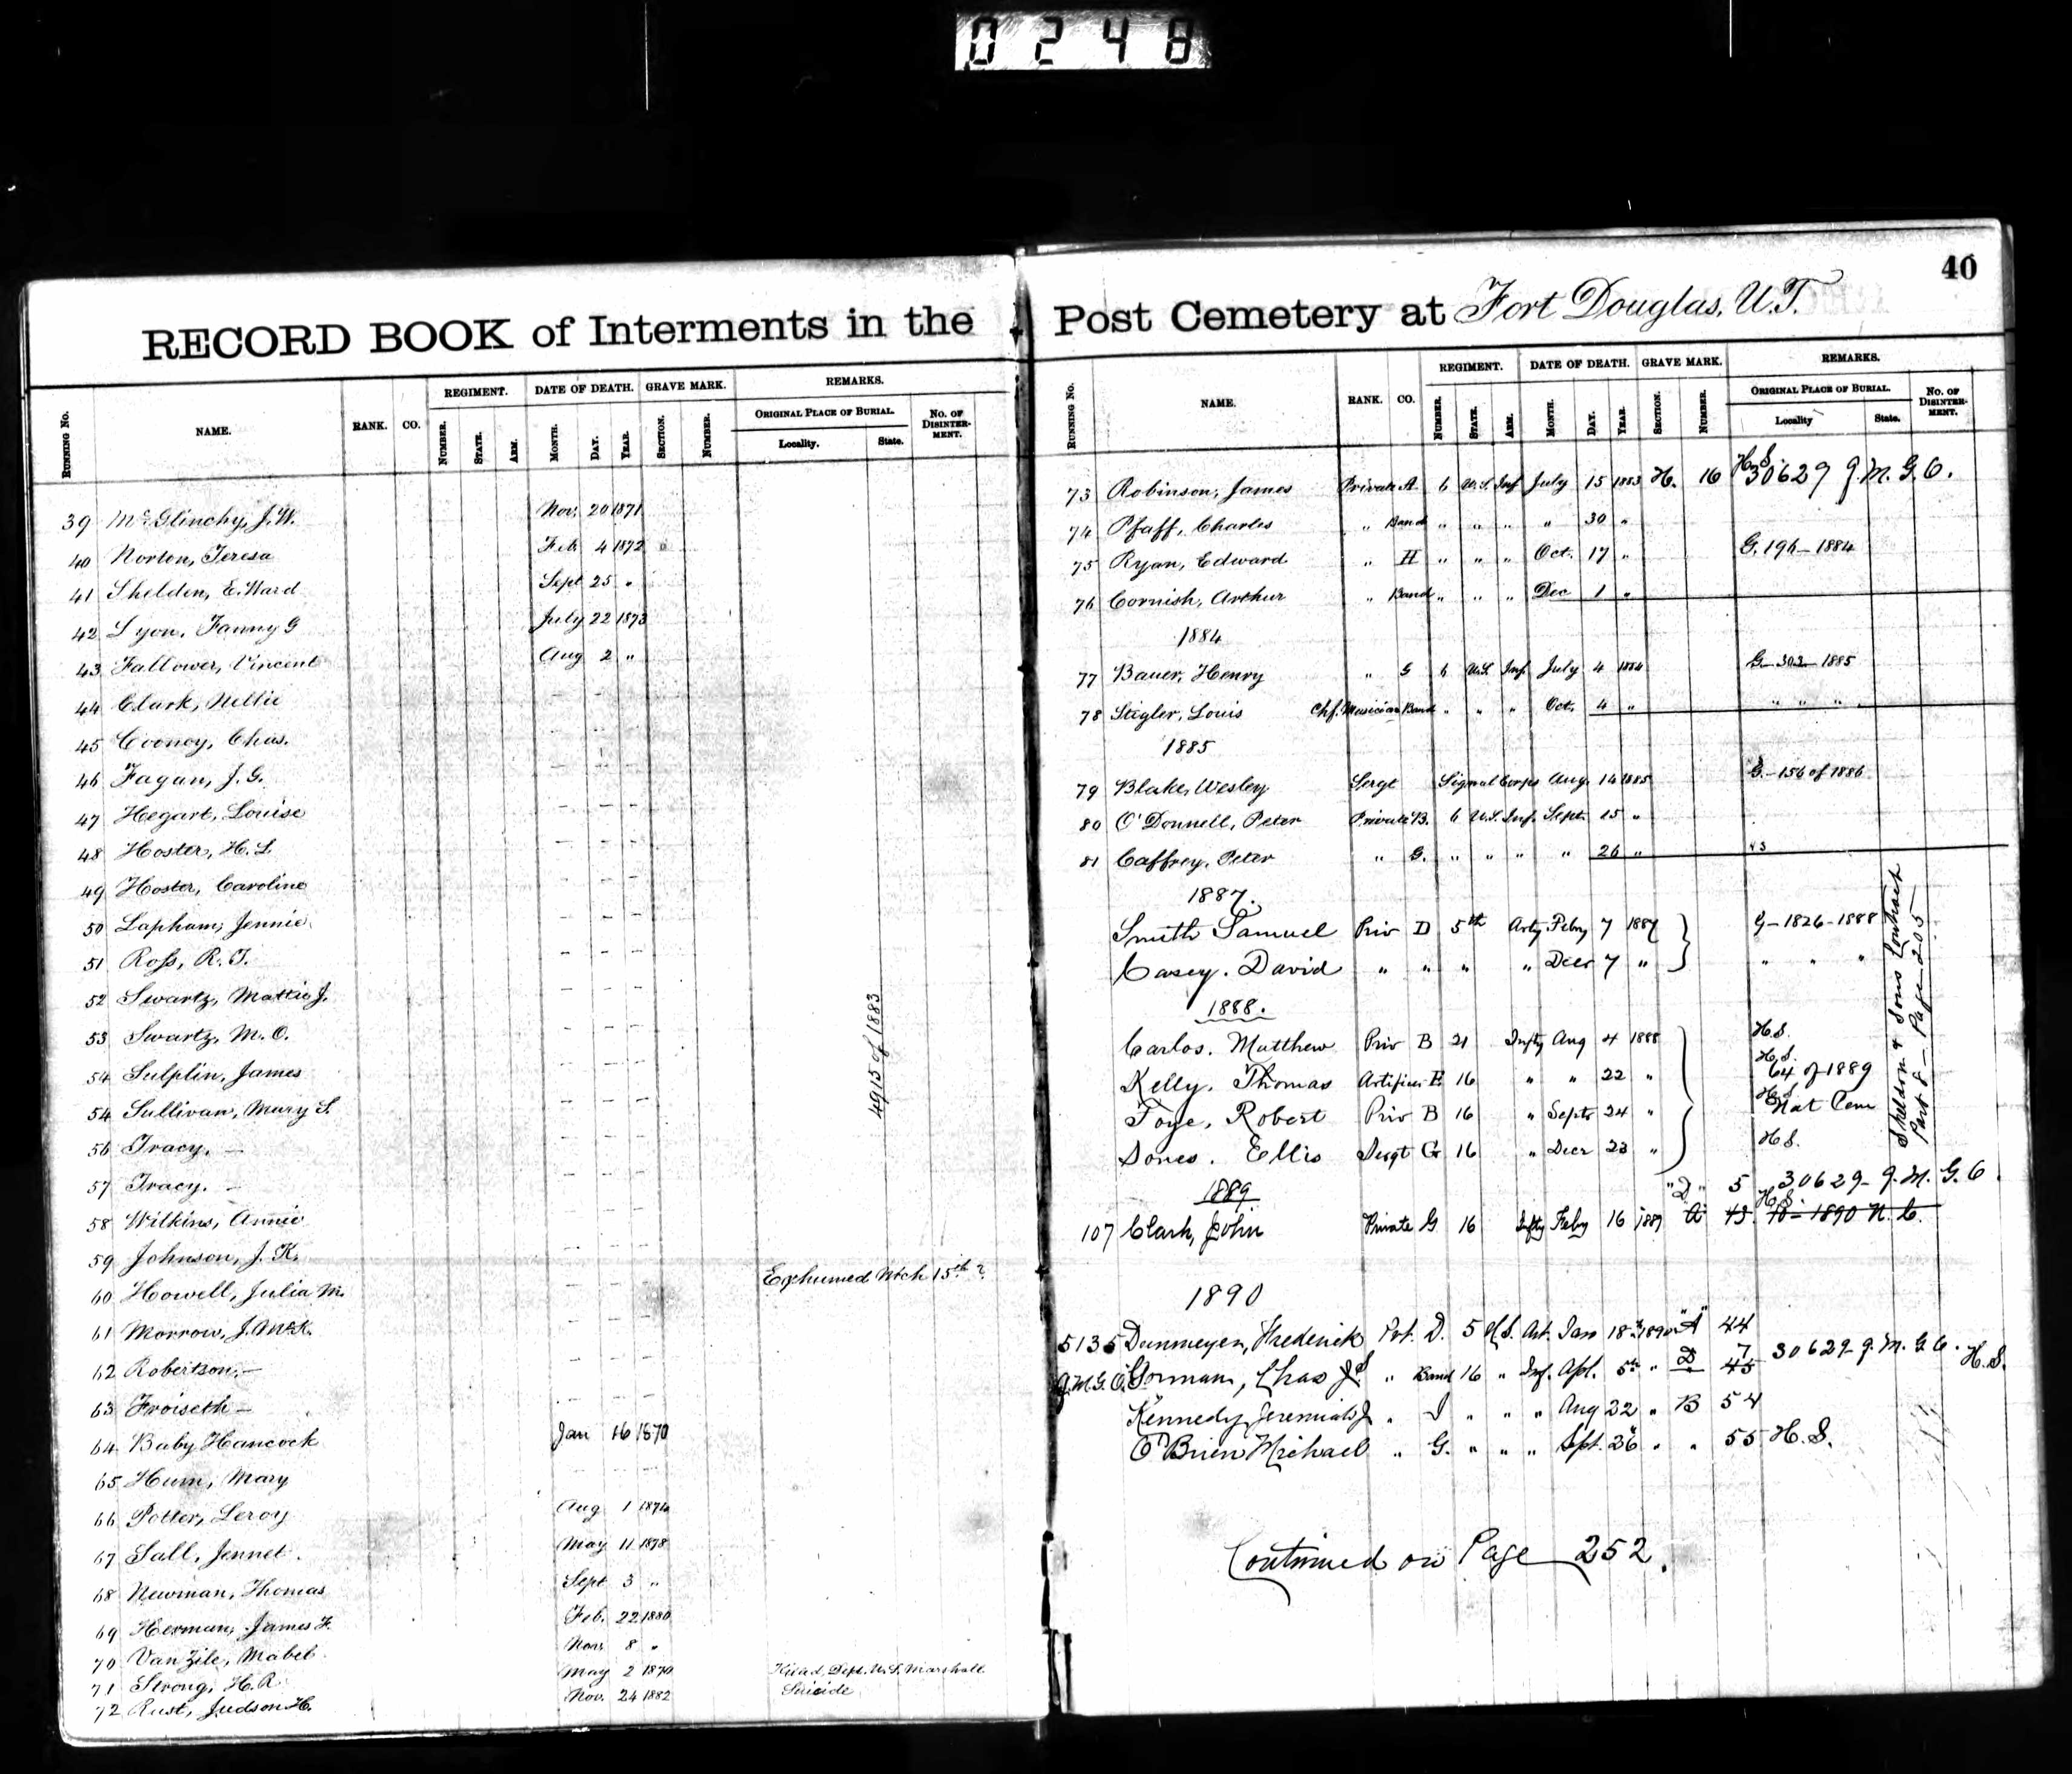 0248
40
RECORD BOOK of Interments in the
RUNNING No. NAME. RANK. CO. REGIMENT. NUMBER. STATE. ARM. DATE OF DEATH. MONTH. DAY. YEAR. GRAVE MARK. SECTION. NUMBER. REMARKS. ORIGINAL PLACE OF BURIAL. Locality. State. No. OF DISINTER-MENT.
39 McGlinchy, J. W. Nov. 20 1871
40 Norton, Teresa Feb. 4 1872
41 Shelden, E. Ward Sept 25 "
42 Lyon, Fanny G July 22 1873
43 Fallower, Vincent Aug 2 "
44 Clark, Nellie
45 Cooney, Chas.
46 Fagan, J. G.
47 Hegart, Louise
48 Hoster, H. L.
49 Hoster, Caroline
50 Lapham, Jennie
51 Ross, R. T.
52 Swartz, Mattie J.
53 Swartz, M. O.
54 Sulplin, James
54 Sullivan, Mary S.
56 Tracy. —
57 Tracy. —
58 Wilkins, Annie
59 Johnson, J. K.
60 Howell, Julia M. Exhumed Mch 15th
61 Morrow, J. McK.
62 Robertson, —
63 Froiseth —
64 Baby Hancock Jan 16 1870
65 Hum, Mary
66 Potter, Leroy Aug 1 1874
67 Sall, Jennet. May 11 1878
68 Newman, Thomas Sept 3 "
69 Herman, James F. Feb. 22 1880
70 Van Zile, Mabel Nov. 8 "
71 Strong, H. R. May 2 1870 Killed, Dept. U. S. Marshall
72 Rust, Judson H. Nov. 24 1882 Suicide
4915 of 1883
Post Cemetery at Fort Douglas, U.T.
RUNNING No. NAME. RANK. CO. REGIMENT. NUMBER. STATE. ARM. DATE OF DEATH. MONTH. DAY. YEAR. GRAVE MARK. SECTION. NUMBER. REMARKS. ORIGINAL PLACE OF BURIAL. Locality State. No. OF DISINTER-MENT.
73 Robinson, James Private A 6 U.S. Inf July 15 1883 H. 16 H.S. 30629 Q.M.G.O.
74 Pfaff, Charles " Band " " " " 30 "
75 Ryan, Edward " H " " " Oct. 17 " G. 196 - 1884
76 Cornish, Arthur " Band " " " Dec 1 "
1884
77 Bauer, Henry " G 6 U.S. Inf. July 4 1884 G - 302 - 1885
78 Stigler, Louis Chf. Musician Band " " " Oct. 4 " " " "
1885
79 Blake, Wesley Sergt Signal Corps Aug. 14 1885 G. - 156 of 1886
80 O'Donnell, Peter Private B. 6 U.S. Inf. Sept. 15 "
81 Caffrey, Peter " G. " " " " 26 "
1887.
Smith Samuel Priv D 5th Arty Feby 7 1887 G - 1826 - 1888
Casey. David " " " " Decr 7 " " " "
1888.
Carlos. Matthew Priv B 21 Infty Aug 4 1888 H.S.
Kelly. Thomas Artificer E 16 " " 22 " H.S. 64 of 1889
Foye, Robert Priv B 16 " Septr 24 " H.S. Nat Cem
Jones. Ellis Sergt G 16 " Decr 23 " H.S.
Sheldon & Sons Contract
Part 8 - Page 205
1889 "D" 5 30629 - Q.M.G.O.
107 Clark, John Private G 16 Infty Feby 16 1889 A 43. H.S. 10 - 1890 N.C.
1890
5135 Dunmeyer, Frederick Pvt. D. 5 U.S. Art. Jan 18th 1890 "A" 44
Q.M.G.O. Gorman, Chas S. " Band 16 " Inf. Apl. 5th " D 7 45 30629 - Q.M.G.O. H.S.
Kennedy, Jeremiah J. " I " " " Aug 22 " B 54
O'Brien Michael " G. " " " Sept. 26 " " 55 H.S.
Continued on Page 252.